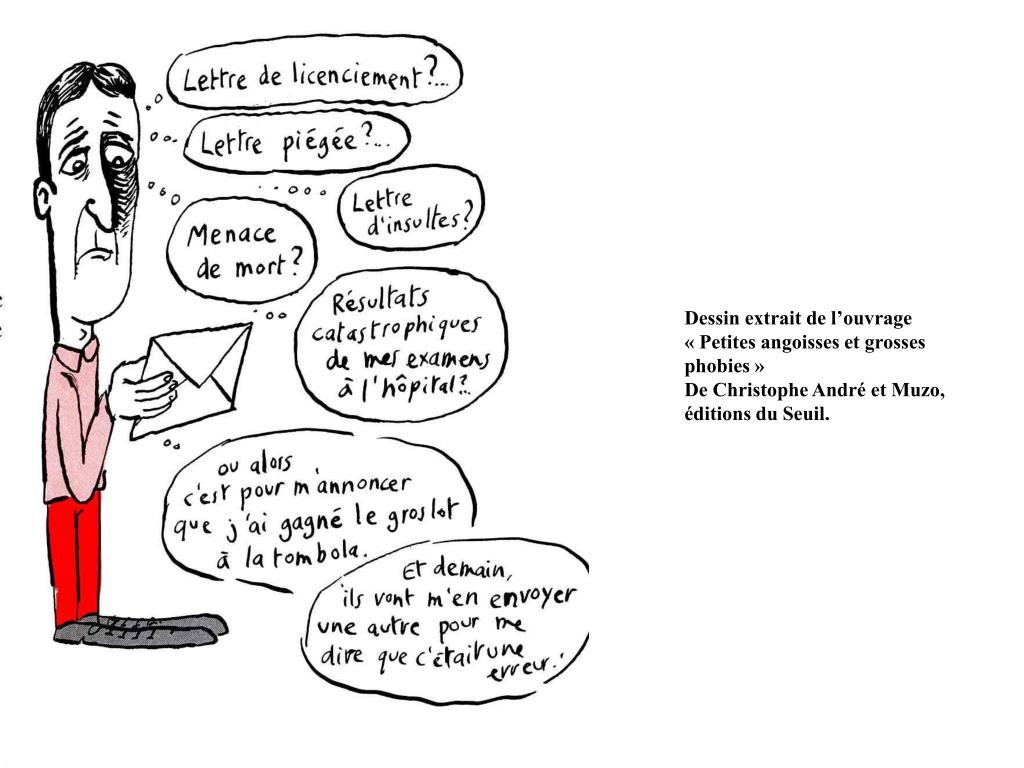 Lettre de licenciement?...
Lettre piégée?...
Lettre
d'insultes?
Menace
de mort?
Résultats
catastrophiques
de mes examens
à l'hôpital?..
ou alors
c'est pour m'annoncer
que j'ai gagné le gros lot
à la tombola.
Et demain,
ils vont m'en envoyer
une autre pour me
dire que c'était une
erreur..
Dessin extrait de l’ouvrage
« Petites angoisses et grosses
phobies »
De Christophe André et Muzo,
éditions du Seuil.